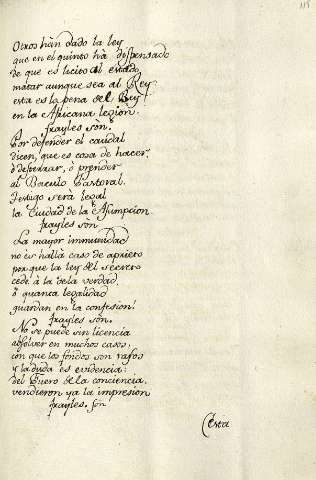 115
Otros hàn dado la ley
que en el quinto hà dispensado
de que es licito al estado
matar aunque sea al Rey
esta es la pena del Buy
en la Africana legion.
frayles sòn.
Por defender el caudal
dicen, que es cosa de hacer,
ò desterrar, ò prender
al Baculo Pastoral.
Testigo serà legal
la Ciudad de la Asumpcion.
frayles sòn
La mayor immunidad
no es halla caso de aprieto
por que la ley del secreto
cede à la vela verdad.
ò quanta legalidad
guardan en la confesion!
frayles sòn.
No se puede sin licencia
absolver en muchos casos,
con que los fondos son rasos
y la duda es evidencia:
del Fuero de la conciencia,
vendieron ya la impresion
frayles. sòn
Esta